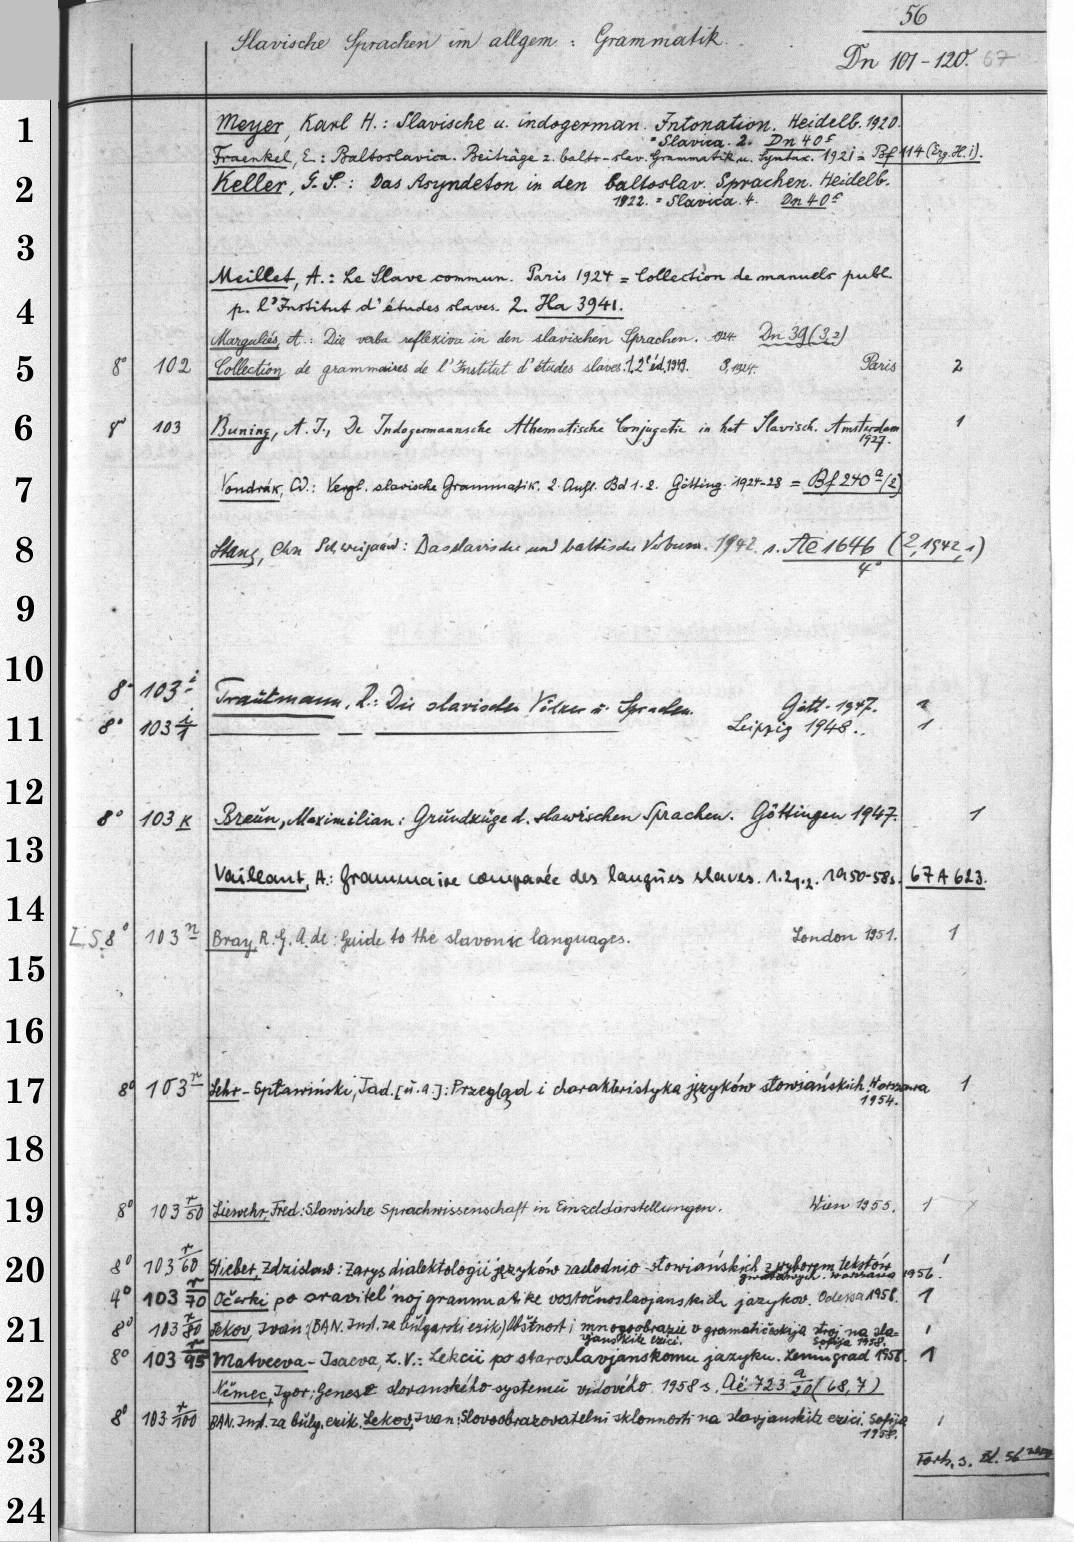 56
Slavische Sprachen im allgem : Grammatik.
Dn 101-120. 67
1
Meyer, Karl H.: Slavische u. indogerman. Intonation. Heidelb. 1920.
= Slavica. 2. Dn 40 f
Fraenkel, E.: Baltoslavica. Beiträge z. balto-slav. Grammatik u. Syntax. 1921 = Bf 114 (Erg. H. i).
2
Keller, G. S.: Das Asyndeton in den baltoslav. Sprachen. Heidelb.
1922. = Slavica. 4. Dn 40 f
3
Meillet, A.: Le Slave commun. Paris 1924 = Collection de manuels publ.
4
p. l'Institut d'études slaves. 2. Ha 3941.
Margulies, A.: Die verba reflexiva in den slavischen Sprachen. 1924. Dn 39 (3,2)
5
8° 102 Collection de grammaires de l'Institut d'études slaves. 1, 2e éd. 1949. 3, 1924. Paris 2
6
8° 103 Buning, A. J., De Indogermaansche Athematische Conjugatie in het Slavisch. Amsterdam 1
1927.
7
Vondrák, W.: Vergl. slavische Grammatik. 2. Aufl. Bd 1. 2. Götting. 1924-28 = Bf 240 a (2)
8
Stang, Chr. Schweigaard: Das slavische und baltische Verbum. 1942. s. Ae 1646 (2, 1942, 1)
4°
9
10
8° 103 i Trautmann, R.: Die slavischen Völker u. Sprachen. Gött. 1947.
11
8° 103 i/1 Leipzig 1948. 1
12
8° 103 k Braun, Maximilian: Grundzüge d. slawischen Sprachen. Göttingen 1947. 1
13
Vaillant, A.: Grammaire comparée des langues slaves. 1. 2,1.2. 1950-58. 67 A 623.
14
L. S. 8° 103 n Bray, R. G. A. de: Guide to the slavonic languages. London 1951. 1
15
16
17
8° 103 r Lehr-Spławiński, Tad. [u. a.]: Przegląd i charakterystyka języków słowiańskich. Warszawa 1
1954.
18
19
8° 103 r/50 Liewehr, Fred: Slawische Sprachwissenschaft in Einzeldarstellungen. Wien 1955. 1
20
8° 103 r/60 Stieber, Zdzisław: Zarys dialektologii języków zachodnio-słowiańskich z wyborem tekstów 1
gwarowych. Warszawa 1956.
4° 103 r/70 Očerki po sravitel'noj grammatike vostočnoslavjanskich jazykov. Odessa 1958. 1
21
8° 103 r/80 Lekov, Ivan: (BAN. Inst. za bŭlgarski ezik) Obštnost i mnogoobrazie v gramatičeskija stroj na sla- 1
vjanskite ezici. Sofija 1958.
8° 103 r/95 Matveeva-Isaeva, L. V.: Lekcii po staroslavjanskomu jazyku. Leningrad 1958. 1
22
Němec, Igor: Genese slovanského systemu vidového. 1958 s. Aë 723 a/20 (68, 7)
8° 103 r/100 BAN. Inst. za bŭlg. ezik. Lekov, Ivan: Slovoobrazovatelni sklonnosti na slavjanskite ezici. Sofija 1
1958.
23
Forts. s. Bl. 56
24